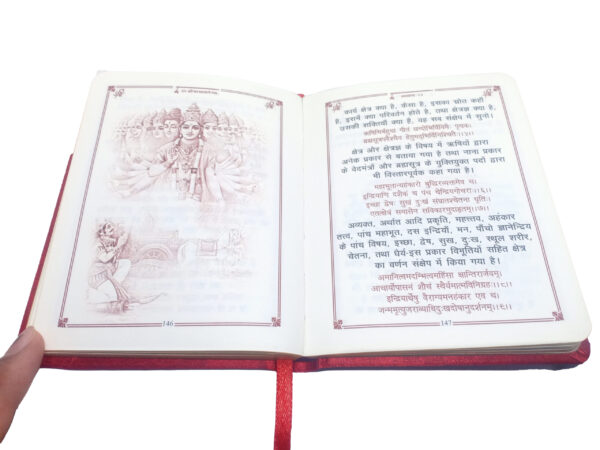 146
कार्य क्षेत्र क्या है, कैसा है, इसका स्रोत कहाँ
है, इसमें क्या परिवर्तन होते है, तथा क्षेत्रज्ञ क्या है,
उसकी शक्तियाँ क्या है, यह सब संक्षेप में सुनो।
क्षेत्र और क्षेत्रज्ञ के विषय में ऋषियों द्वारा
अनेक प्रकार से बताया गया है तथा नाना प्रकार
के वेदमंत्रों और ब्रह्मसूत्र के युक्तियुक्त पदों द्वारा
भी विस्तारपूर्वक कहा गया है।
महाभूतान्यहंकारो बुद्धिरव्यक्तमेव च।
इन्द्रियाणि दशैकं च पंच चेन्द्रियगोचराः॥६॥
इच्छा द्वेषः सुखं दुःखं संघातश्चेतना धृतिः।
एतत्क्षेत्रं समासेन सविकारमुदाहृतम्॥७॥
अव्यक्त, अर्थात आदि प्रकृति, महत्तत्त्व, अहंकार
तत्त्व, पांच महाभूत, दस इन्द्रियाँ, मन, पाँचों ज्ञानेन्द्रिय
के पांच विषय, इच्छा, द्वेष, सुख, दुःख, स्थूल शरीर,
चेतना, तथा धैर्य-इस प्रकार विभूतियों सहित क्षेत्र
का वर्णन संक्षेप में किया गया है।
अमानित्वमदम्भित्वमहिंसा क्षान्तिरार्जवम्।
आचार्योपासनं शौचं स्थैर्यमात्मविनिग्रहः॥८॥
इन्द्रियार्थेषु वैराग्यमनहंकार एव च।
जन्ममृत्युजराव्याधिदुःखदोषानुदर्शनम्॥९॥
147